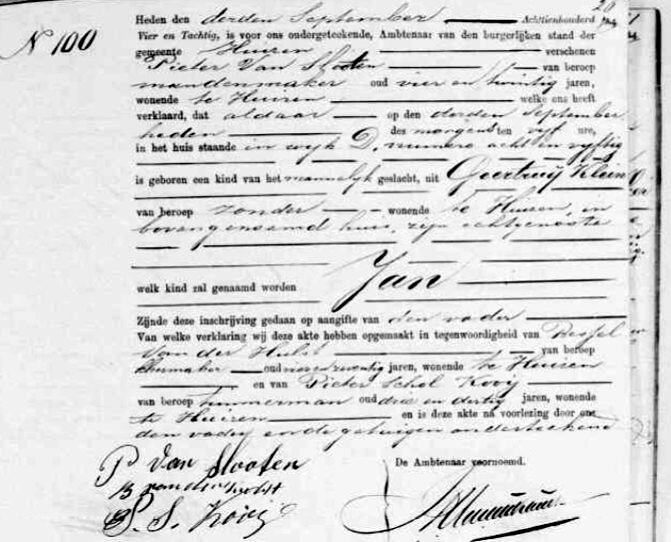 20
N 100
Heden den derden September Achttienhonderd
Vier en Tachtig, is voor ons ondergeteekende, Ambtenaar van den burgerlijken stand der
gemeente Huizen verschenen
Pieter Van Slooten van beroep
mandenmaker oud vier en twintig jaren,
wonende te Huizen welke ons heeft
verklaard, dat aldaar op den derden September
heden des morgens ten vijf ure,
in het huis staande in wijk D, numero acht en vijftig
is geboren een kind van het mannelijk geslacht, uit Geertruij Klein
van beroep zonder wonende te Huizen, in
bovengenoemd huis, zijn echtgenoote
welk kind zal genaamd worden Jan
Zijnde deze inschrijving gedaan op aangifte van den vader
Van welke verklaring wij deze akte hebben opgemaakt in tegenwoordigheid van Bessel
Van der Hulst van beroep
oud jaren, wonende te Huizen
en van Pieter Schel Kooij
van beroep timmerman oud drie en dertig jaren, wonende
te Huizen en is deze akte na voorlezing door ons
den vader en de getuigen onderteekend
P Van Slooten
B van der hulst
P. S. Kooij
De Ambtenaar voornoemd.